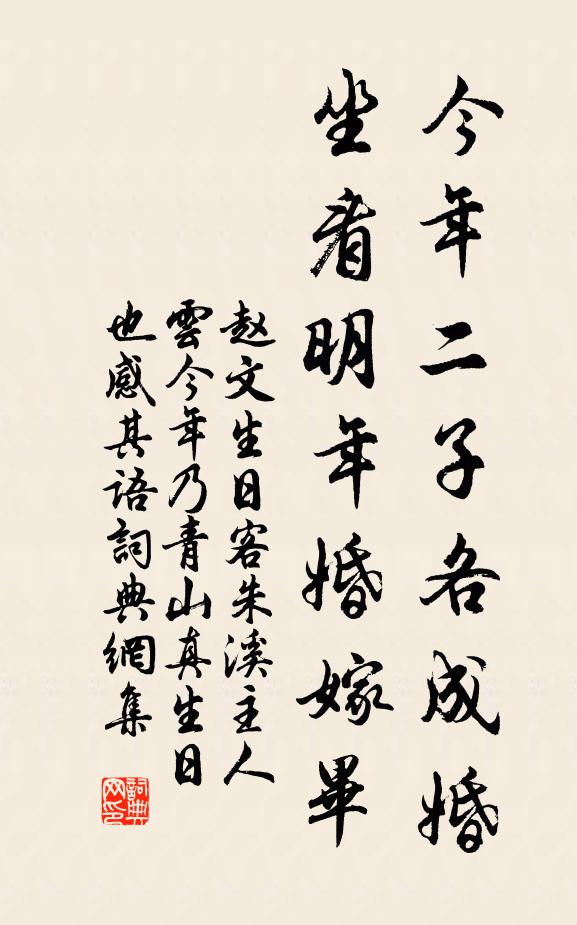 今年二子各成婚
坐看明年婚嫁畢
赵文生日客朱溪主人
雲今年乃青山真生日
也感其语詞典網集
詞典网印